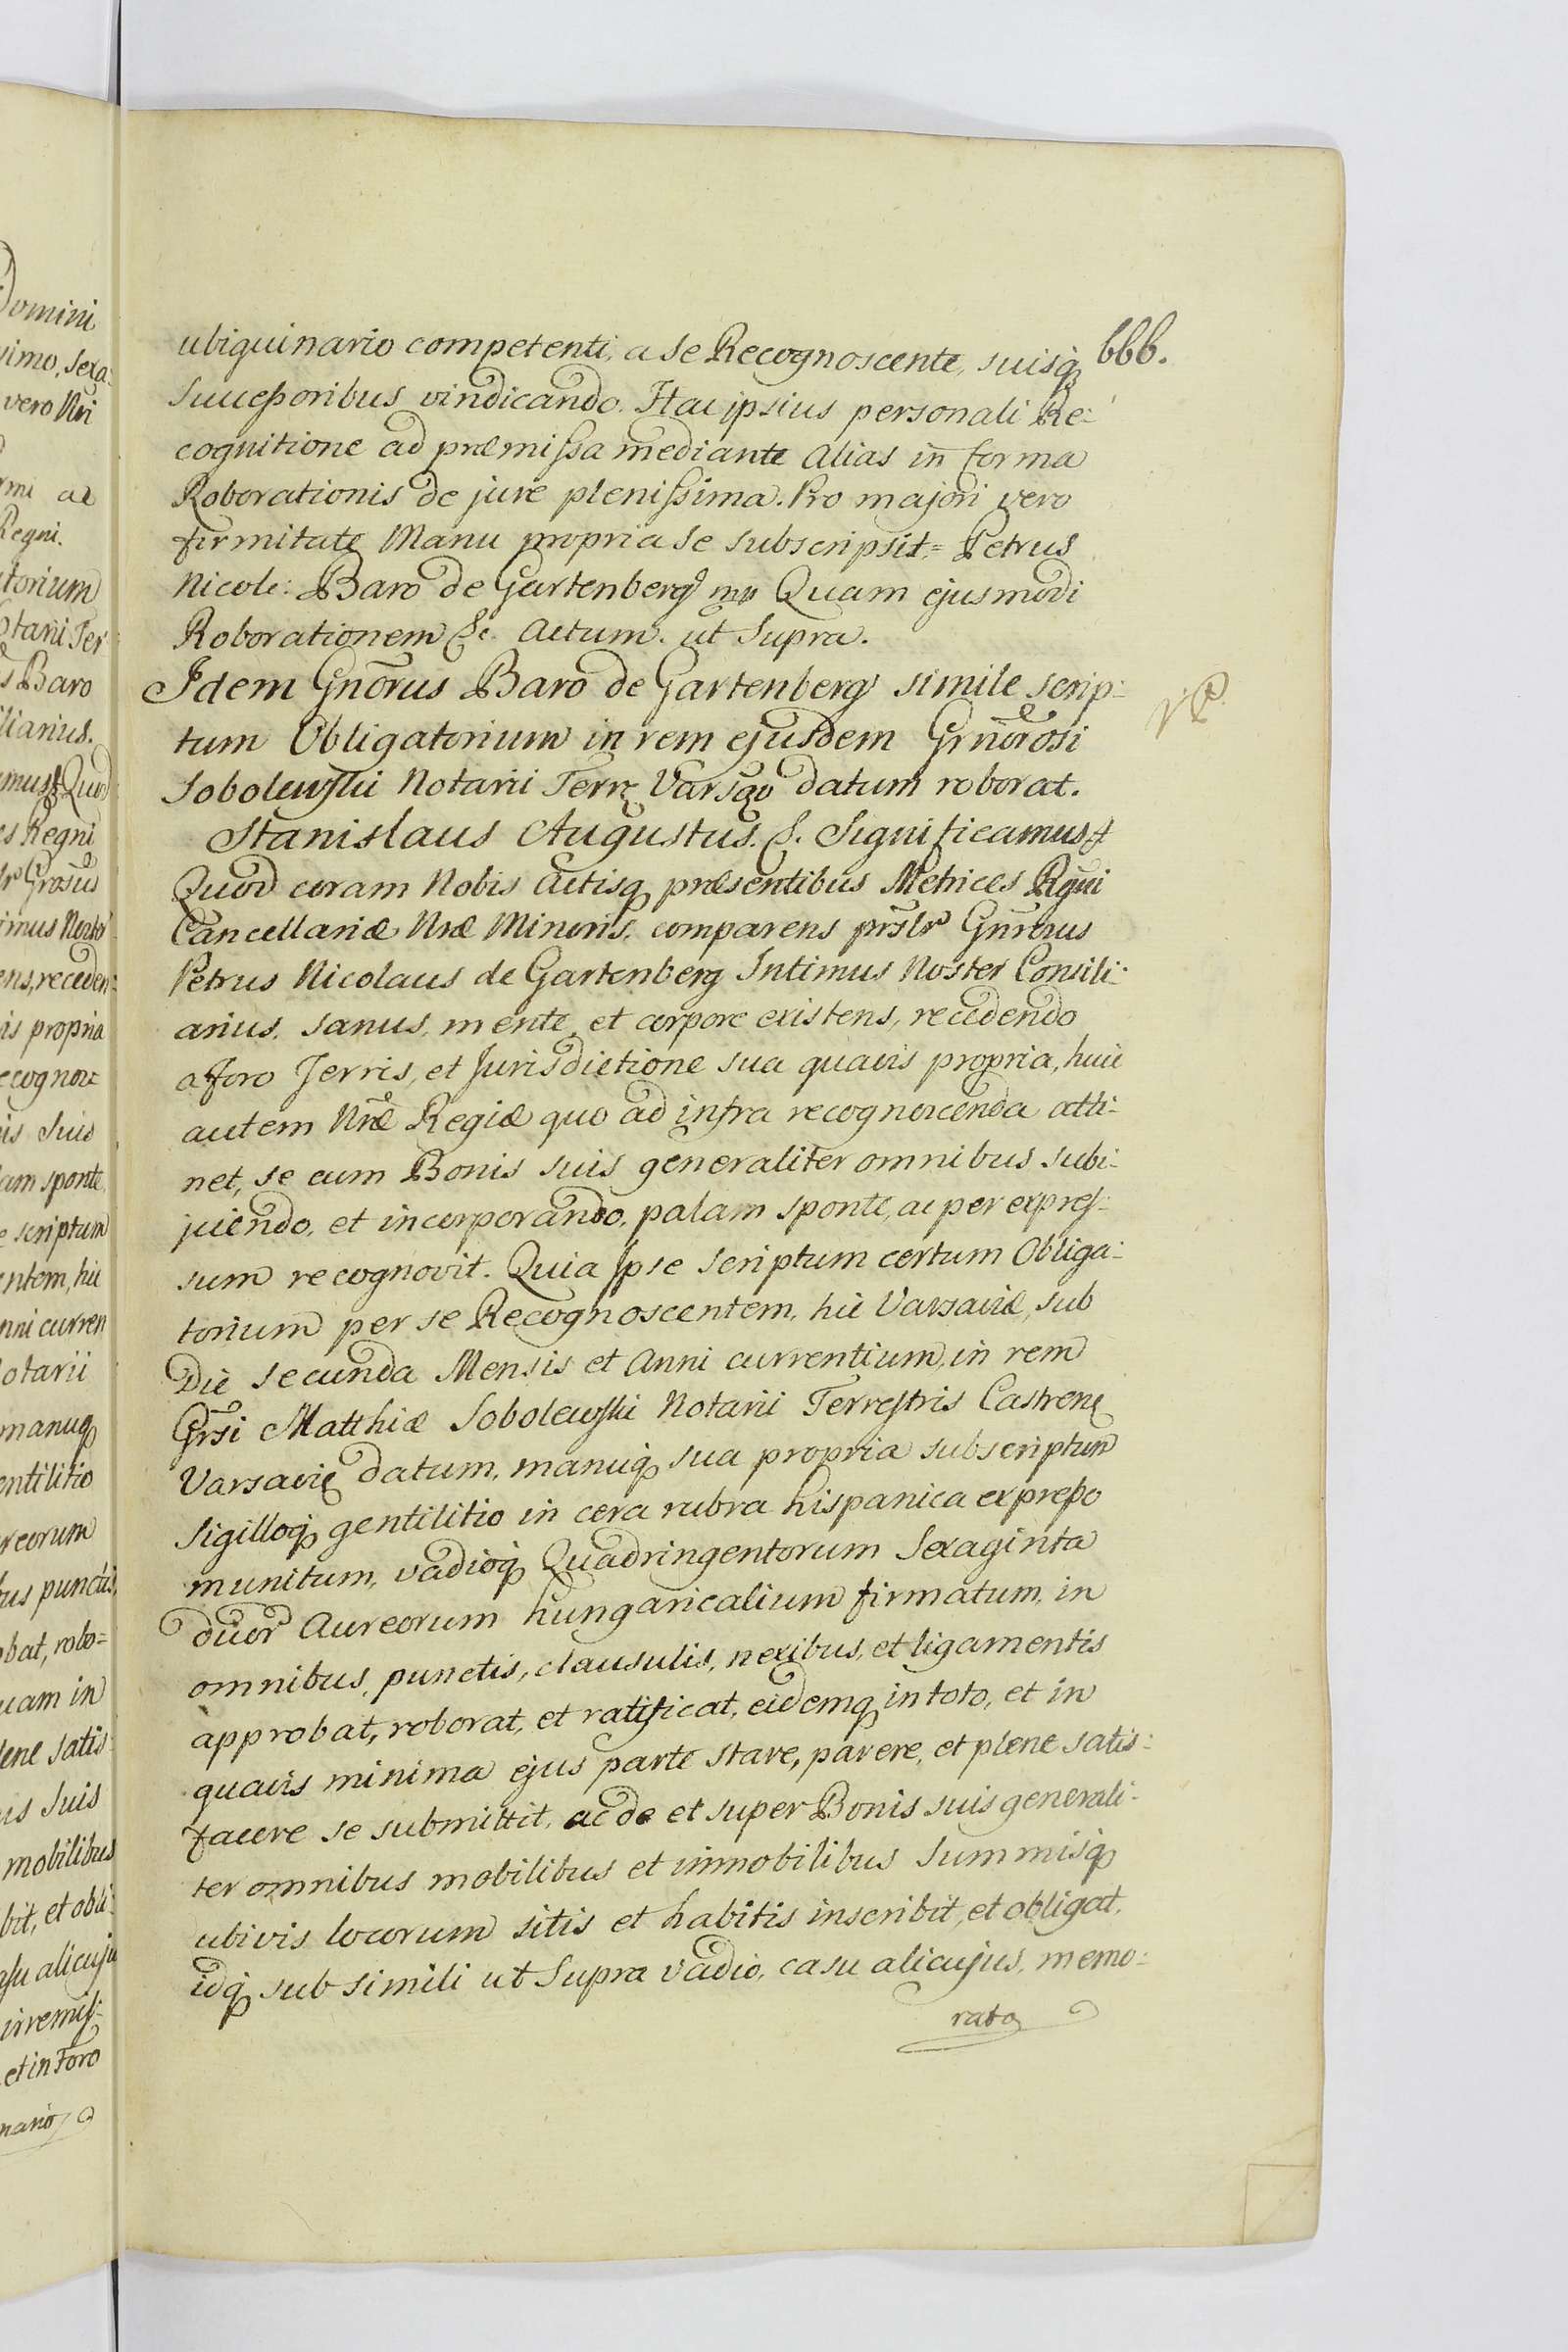 ubiquinario competenti, a se Recognoscente, suisq 666.
Succeßoribus vindicando. Hac ipsius personali Re=
cognitione ad præmissa mediante alias in forma
Roborationis de jure plenissima. Pro majori vero
firmitate Manu propria se subscripsit = Petrus
Nicol: Baro de Gartenberg mp Quam ejusmodi
Roborationem &c. Actum ut Supra.
Idem Gnorus Baro de Gartenberg simile scrip:
tum Obligatorium in rem ejusdem Gnorosi
Sobolewski Notarii Terr Varsao datum roborat.
Stanislaus Augustus. &. Significamus &
Quod coram Nobis Actisq præsentibus Metrices Rgni
Cancellariæ Nræ Minoris, comparens prslr Gnrosus
Petrus Nicolaus de Gartenberg Intimus Noster Consili:
arius, sanus, mente, et corpore existens, recedendo
a foro Terris, et Jurisdictione sua quavis propria, huic
autem Nræ Regiæ quo ad infra recognoscenda atti:
net, se cum Bonis suis generaliter omnibus subi:
jiciendo, et incorporando, palam sponte, ac per expres:
sum recognovit. Quia Ipse Scriptum certum Obliga:
torium per se Recognoscentem, hic Varsaviæ, sub
Die secunda Mensis et Anni currentium, in rem
Grsi Matthiæ Sobolewski Notarii Terrestris Castrenę
Varsavię datum, manuq sua propria subscriptum
Sigilloq gentilitio in cera rubra hispanica expreßo
munitum, vadioq Quadringentorum Sexaginta
duor Aureorum hungaricalium firmatum, in
omnibus, punctis, clausulis, nexibus, et ligamentis
approbat, roborat, et ratificat, eidemq in toto, et in
quavis minima ejus parte stare, parere, et plene satis:
facere se submittit, ac de et super Bonis suis generali:
ter omnibus mobilibus et immobilibus Summisq
ubivis locorum sitis et habitis inscribit, et obligat,
idq sub simili ut Supra vadio, casu alicujus, memo:
rato